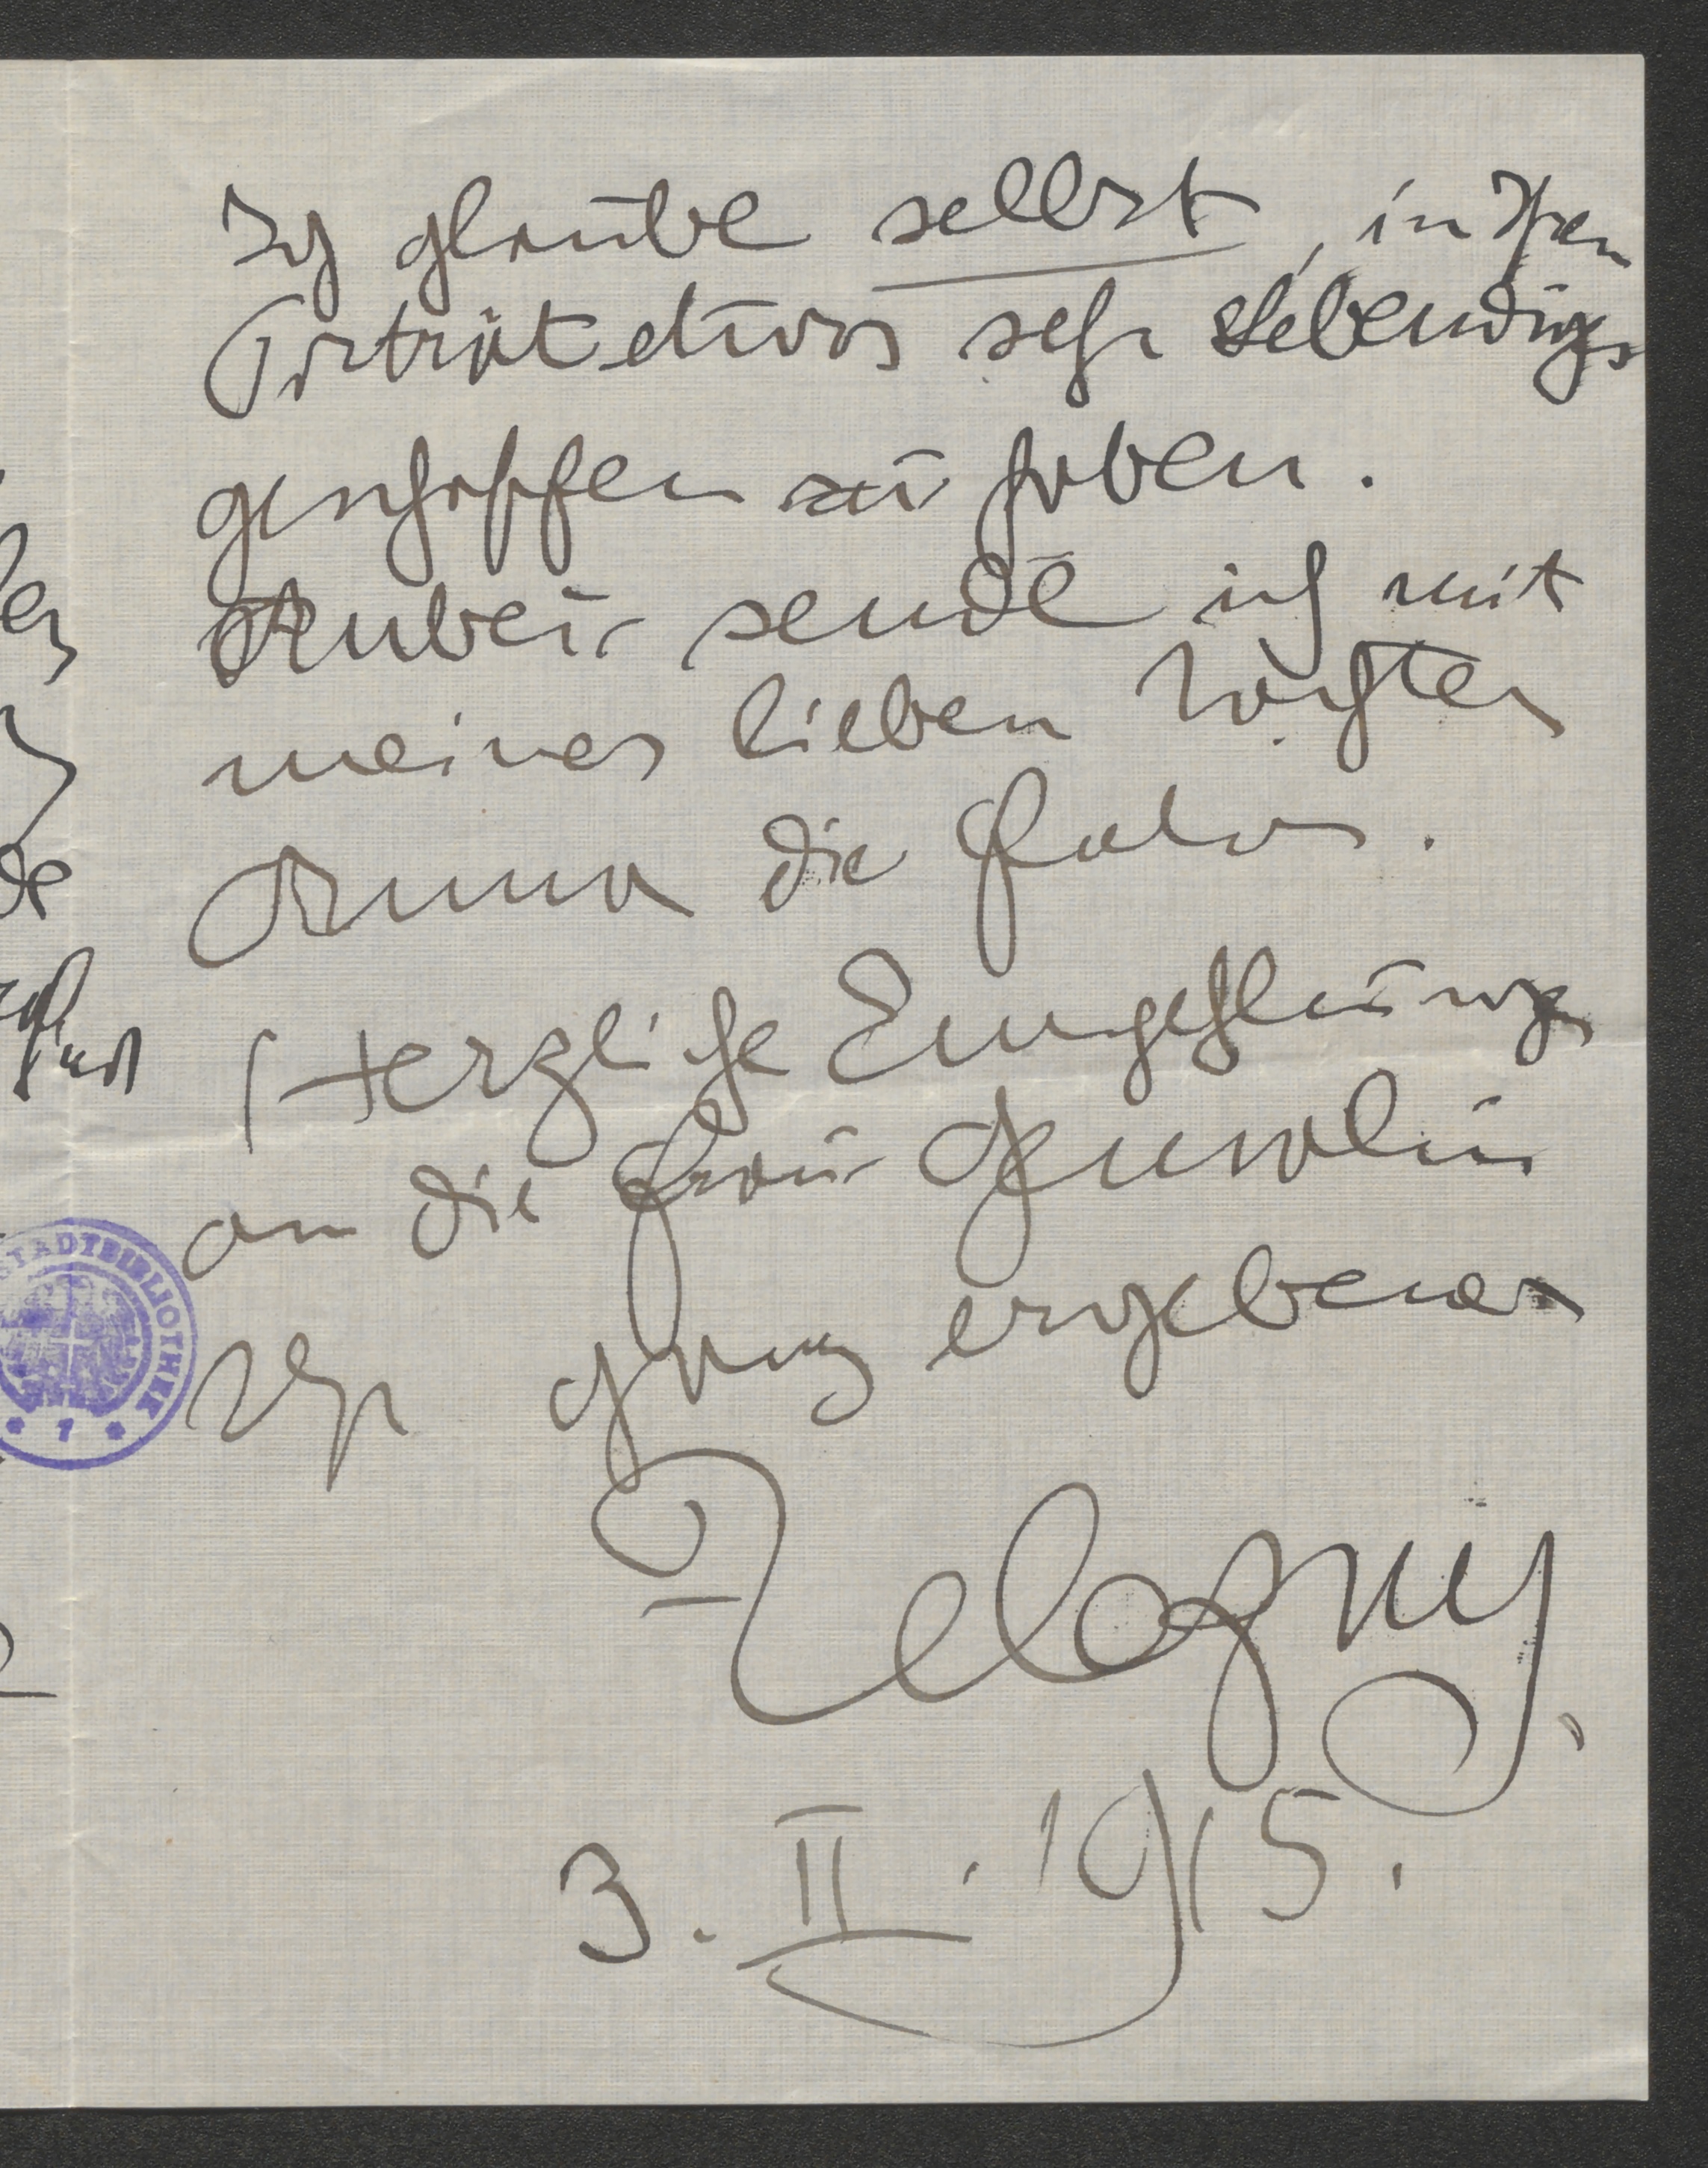 Ich glaube selbst, in Ihrem
Porträt etwas sehr Lebendiges
geschaffen zu haben.
Anbei sende ich mit
meiner lieben Tochter
Anna die Fotos.
Herzliche Empfehlungen
an die Frau Gemahlin
Ihr ganz ergebener
3. II. 1915.
STADTBIBLIOTHEK
* 7 *